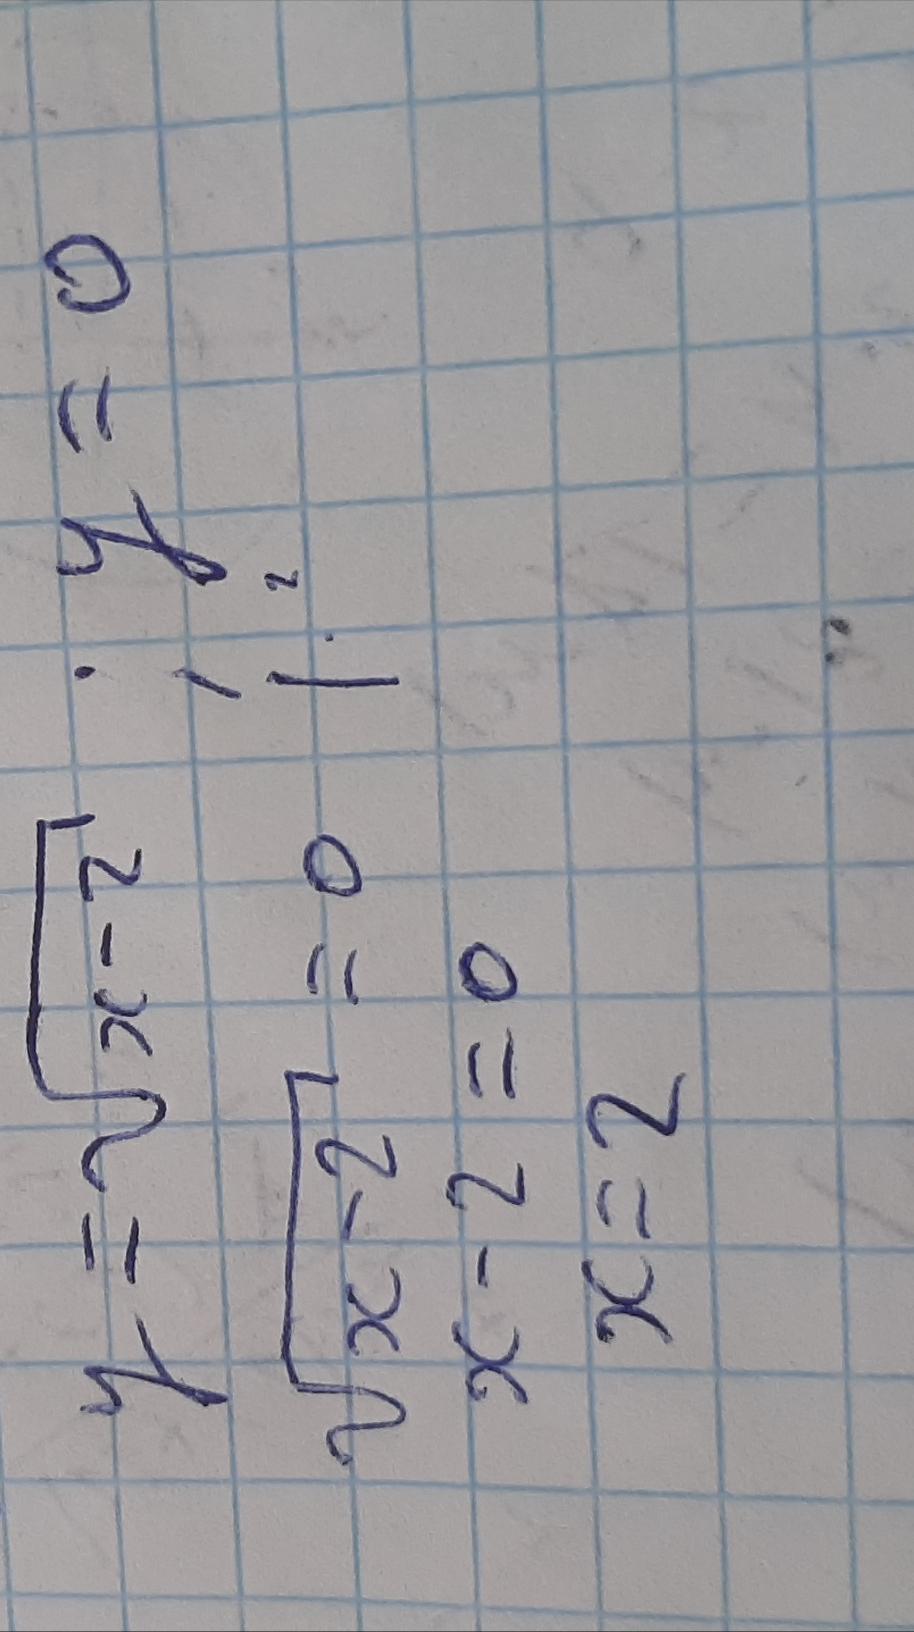 y = √x-2 ; y = 0
√x-2 = 0 |²
x - 2 = 0
x = 2